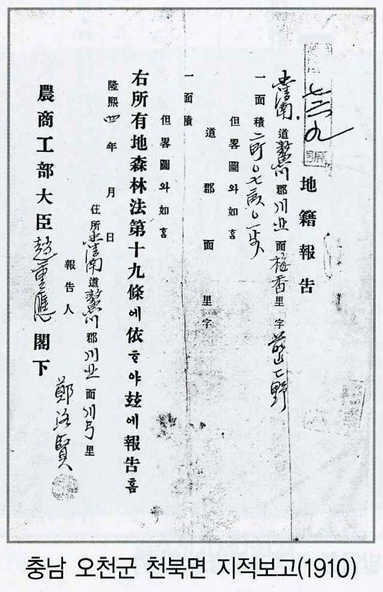 七三九
地籍報告
忠淸南道鰲川郡川北面梅香里字
一面積二町〇七畝〇一步
但畧圖와如홈
道郡面里字
一面積
但畧圖와如홈
右所有地森林法第十九條에依하야玆에報告홈
隆熙四年月日
住所忠淸南道鰲川郡川北面川弓里
報告人鄭洛賢
農商工部大臣趙重應閣下
충남 오천군 천북면 지적보고(1910)